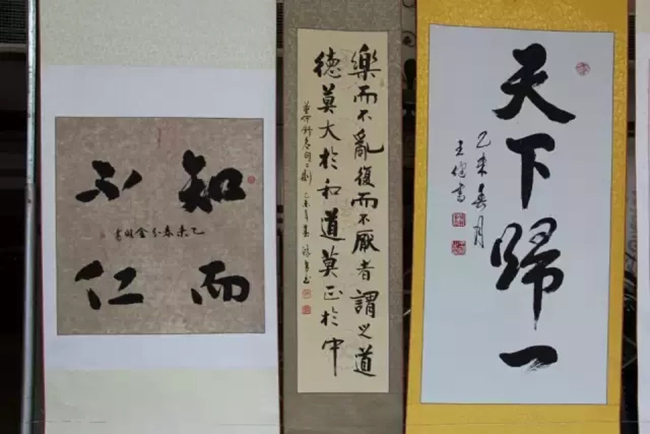 知而
不仁
乙未春分金
樂而不亂復而不厭者謂之道
德莫大於和道莫正於中
董仲舒
天下歸一
乙未春月
王書